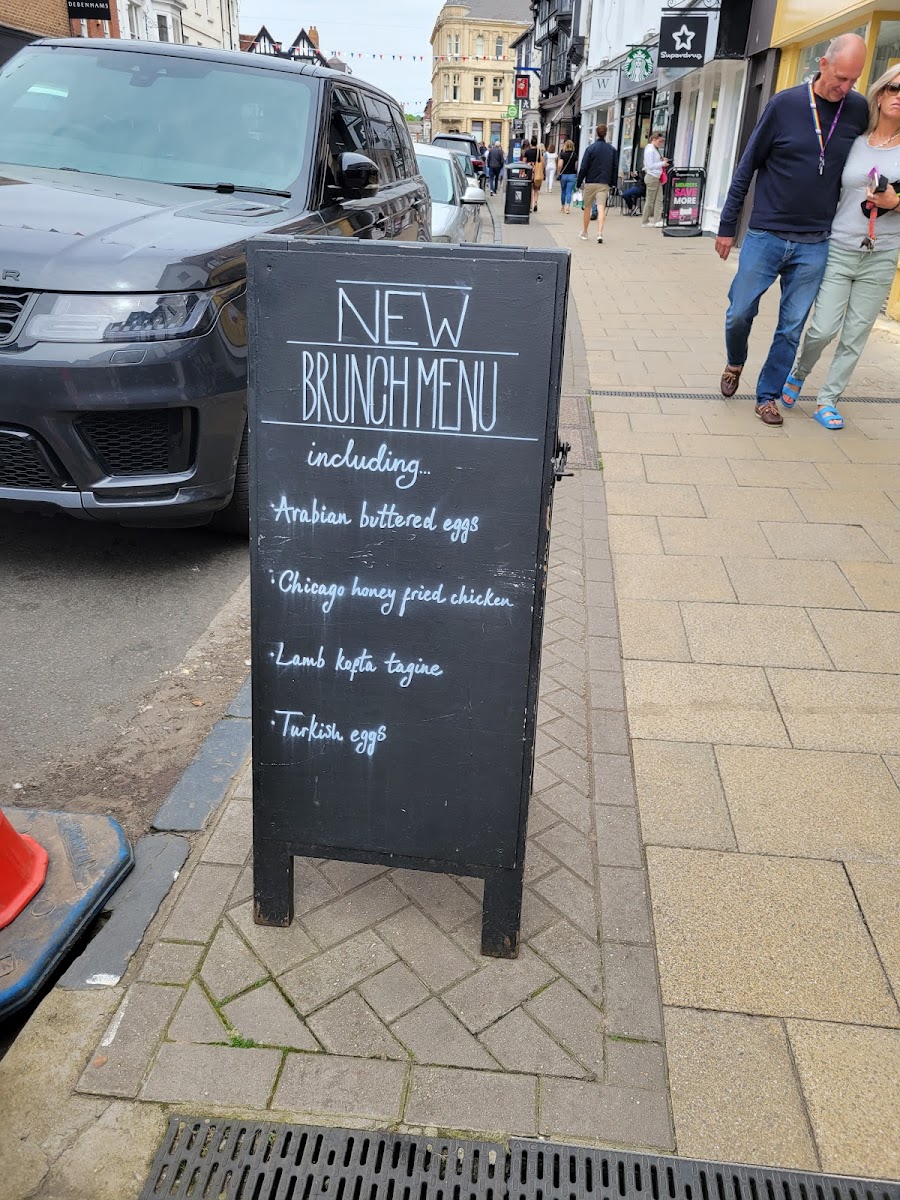 DEBENHAMS
Superdrug
W
MEMBERS
SAVE
MORE
R
NEW
BRUNCH MENU
including...
·Arabian buttered eggs
·Chicago honey fried chicken
·Lamb kofta tagine
·Turkish eggs